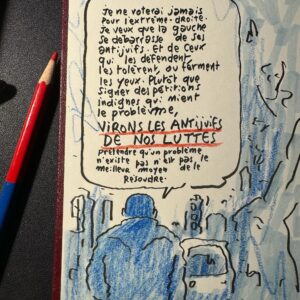 Je ne voterai jamais
pour l'extrême-droite.
Je veux que la gauche
se débarrasse de ses
antijuifs. Et de ceux
qui les défendent,
les tolèrent, ou ferment
les yeux. Plutôt que
signer des pétitions
indignes qui mient
le problème,
VIRONS LES ANTIJUIFS
DE NOS LUTTES
prétendre qu'un problème
n'existe pas n'est pas le
meilleur moyen de le
résoudre.